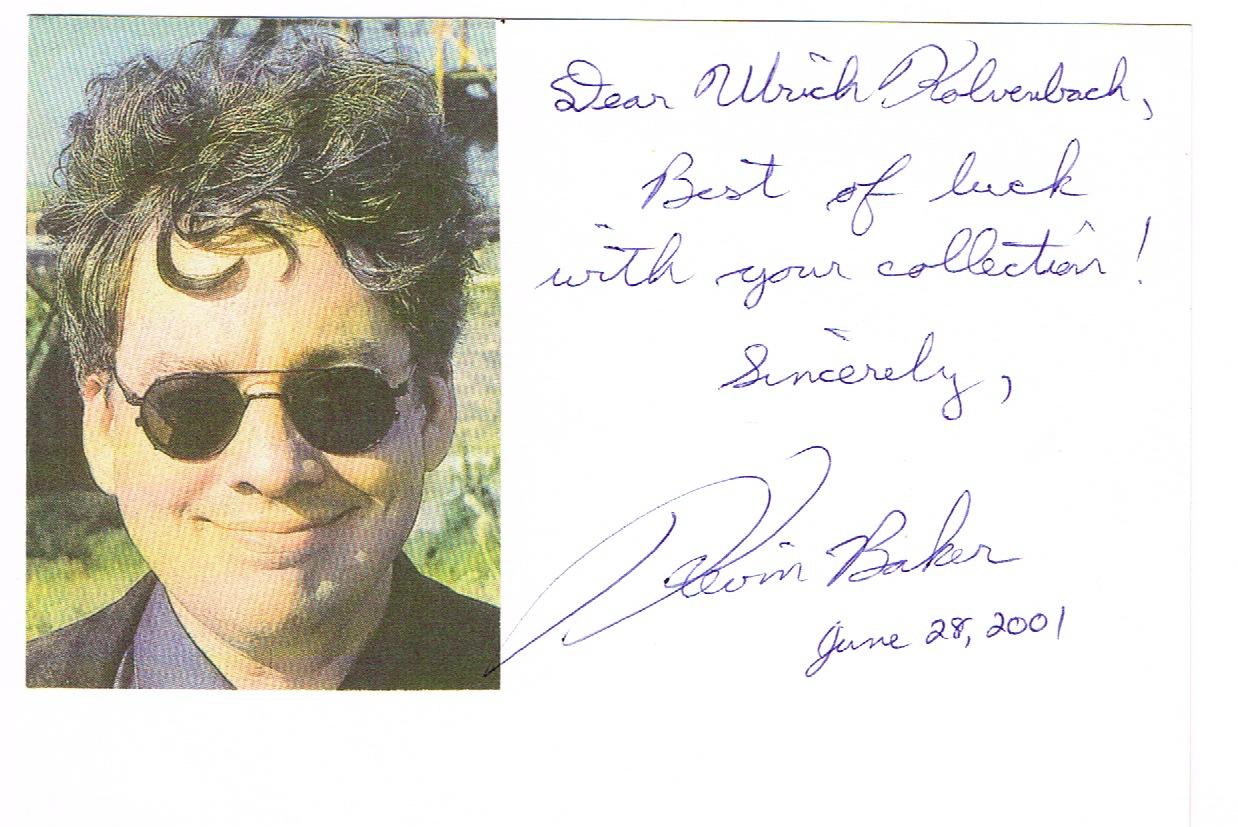 Dear Ulrich Kolvenbach,
Best of luck
with your collection!
Sincerely,
Kevin Baker
June 28, 2001